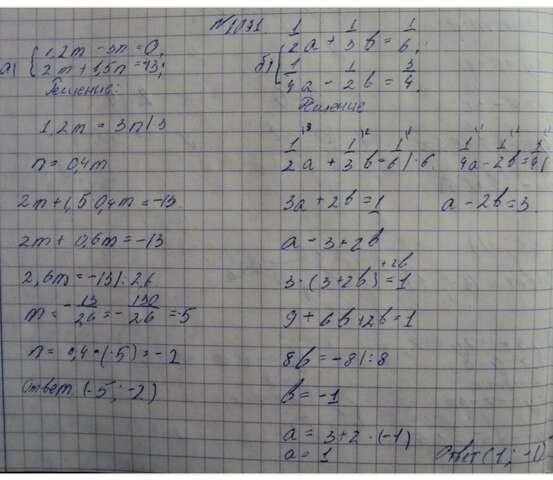 №1071.
а) { 1,2m - 3n = 0,
2m + 1,5n = -13;
Решение:
1,2m = 3n | 3
n = 0,4m
2m + 1,5 0,4m = -13
2m + 0,6m = -13
2,6m = -13 | : 2,6
m = - 13/2,6 = - 130/26 = -5
n = 0,4 · (-5) = -2
Ответ (-5; -2)
б) { 1/2 a + 1/3 b = 1/6,
1/4 a - 1/2 b = 3/4.
Решение
1/2 a + 1/3 b = 1/6 | · 6
1/4 a - 1/2 b = 3/4 |
3a + 2b = 1
a - 2b = 3.
a - 3 + 2b
3 · (3 + 2b) + 2b = 1
9 + 6b + 2b = 1
8b = -8 | : 8
b = -1
a = 3 + 2 · (-1)
a = 1
Ответ (1; -1)